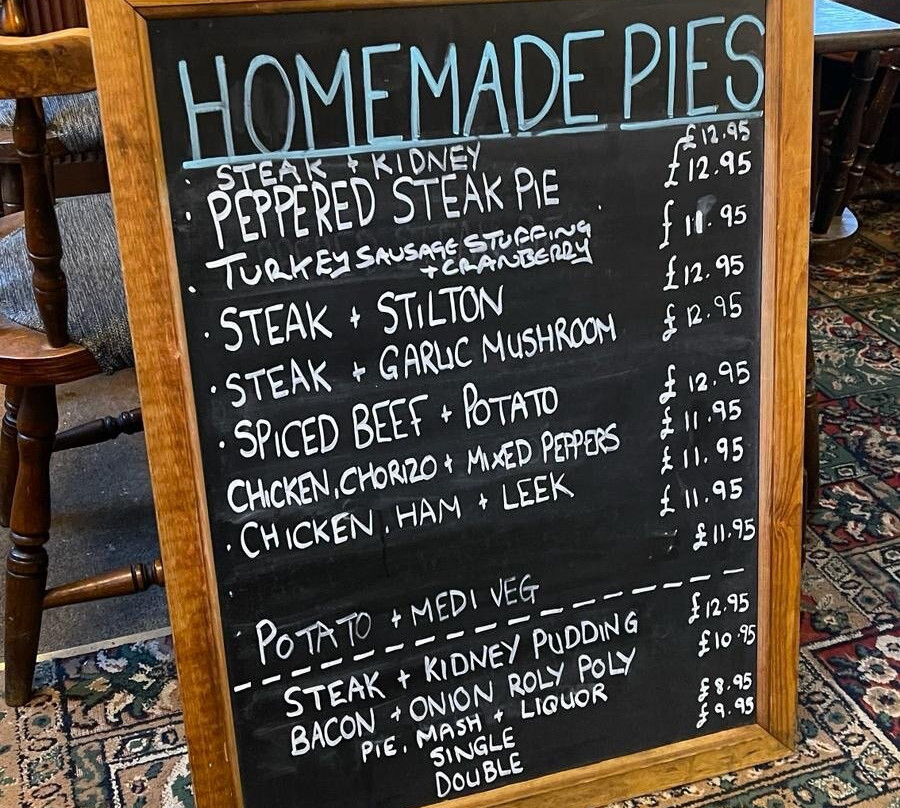 HOMEMADE PIES
· STEAK + KIDNEY £12.95
· PEPPERED STEAK PIE £12.95
· TURKEY SAUSAGE STUFFING £11.95
+ CRANBERRY
· STEAK + STILTON £12.95
· STEAK + GARLIC MUSHROOM £12.95
· SPICED BEEF + POTATO £12.95
CHICKEN, CHORIZO + MIXED PEPPERS £11.95
· CHICKEN, HAM + LEEK £11.95
£11.95
· POTATO + MEDI VEG £11.95
STEAK + KIDNEY PUDDING £12.95
BACON + ONION ROLY POLY £10.95
PIE, MASH + LIQUOR
SINGLE £8.95
DOUBLE £9.95